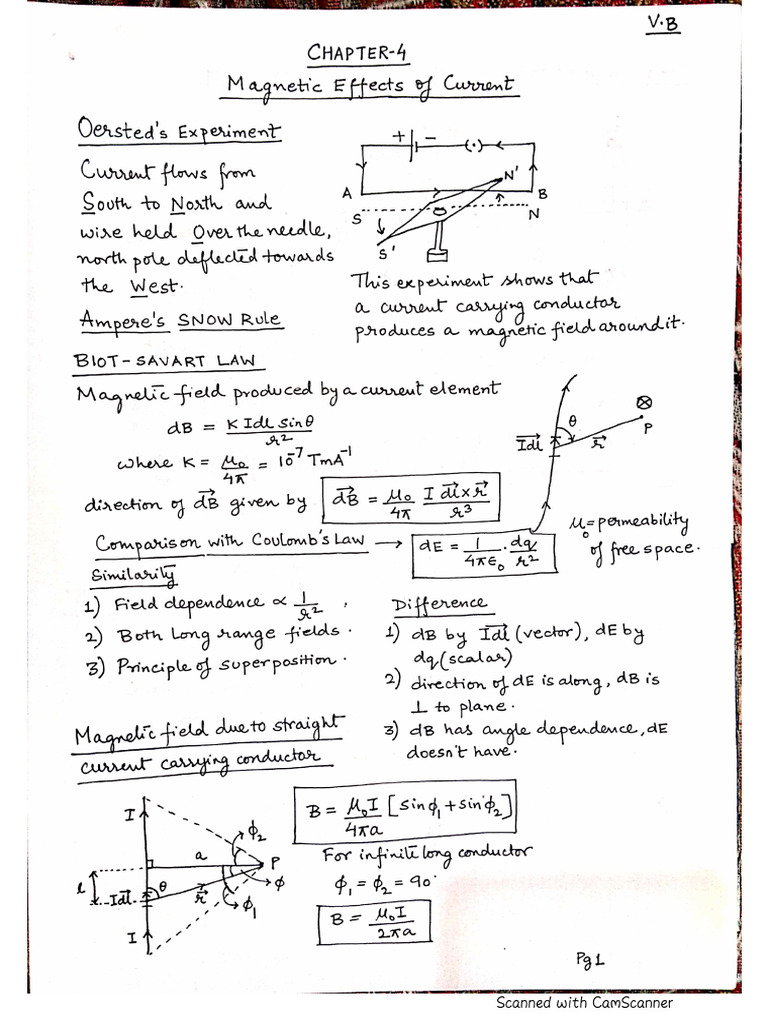 V.B
CHAPTER-4
Magnetic Effects of Current
Oersted's Experiment
Current flows from
South to North and
wire held Over the needle,
north pole deflected towards
the West.
Ampere's SNOW Rule
+ −
(·)
A
B
N'
S
N
S'
This experiment shows that
a current carrying conductor
produces a magnetic field around it.
BIOT-SAVART LAW
Magnetic field produced by a current element
dB = K Idl sinθ / r²
where K = μ₀/4π = 10⁻⁷ TmA⁻¹
direction of dB⃗ given by dB⃗ = μ₀/4π I dl⃗×r⃗ / r³
θ
P
Idl⃗
r⃗
μ₀ = permeability
of free space.
Comparison with Coulomb's Law → dE = 1/4πε₀ · dq/r²
Similarity
1) Field dependence ∝ 1/r².
2) Both Long range fields.
3) Principle of superposition.
Difference
1) dB by Idl⃗ (vector), dE by
dq (scalar)
2) direction of dE is along, dB is
⊥ to plane.
3) dB has angle dependence, dE
doesn't have.
Magnetic field due to straight
current carrying conductor
I
a
ϕ₂
P
l
θ
ϕ
Idl⃗
r⃗
ϕ₁
I
B = μ₀I/4πa [sinϕ₁ + sinϕ₂]
For infinite long conductor
ϕ₁ = ϕ₂ = 90°
B = μ₀I/2πa
Pg 1
Scanned with CamScanner